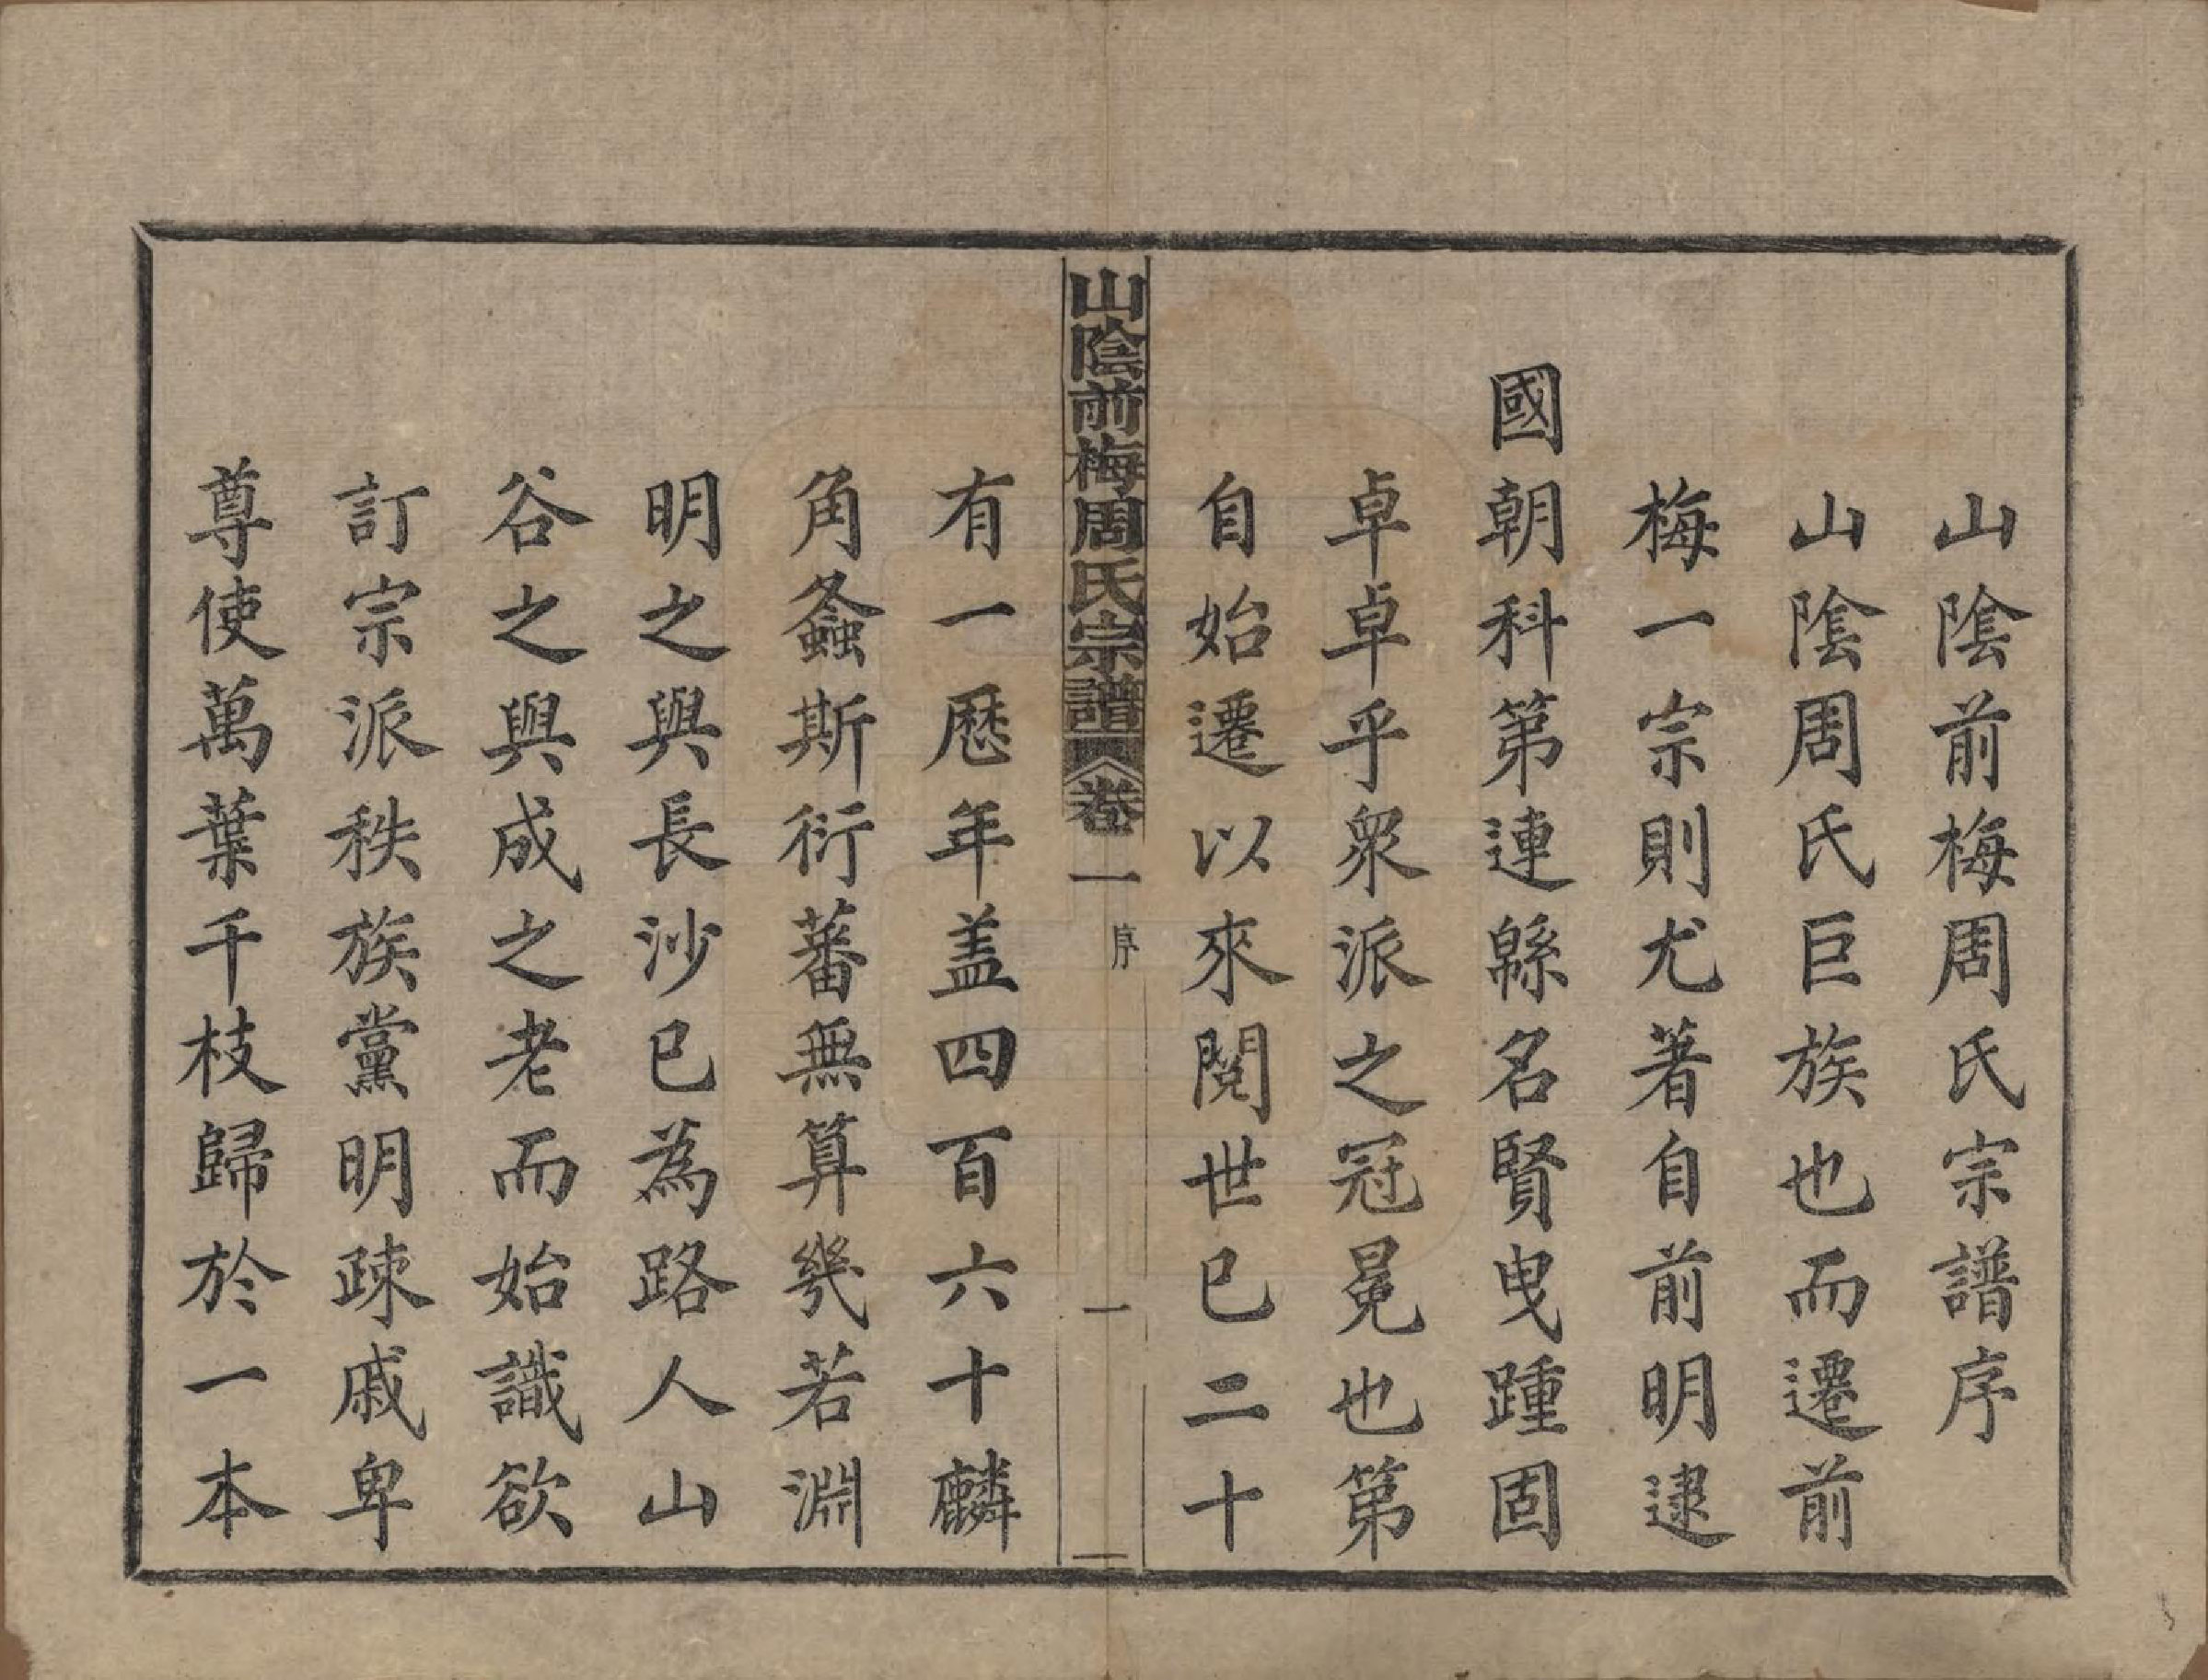 山陰前梅周氏宗譜序
山陰周氏巨族也而遷前
梅一宗則尤著自前明逮
國朝科第連緜名賢曳踵固
卓卓乎眾派之冠冕也第
自始遷以來閱世已二十
山陰前梅周氏宗譜 卷一 序 一
有一歷年盖四百六十麟
角螽斯衍蕃無算幾若淵
明之與長沙已為路人山
谷之與成之老而始識欲
訂宗派秩族黨明疎戚卑
尊使萬葉千枝歸於一本